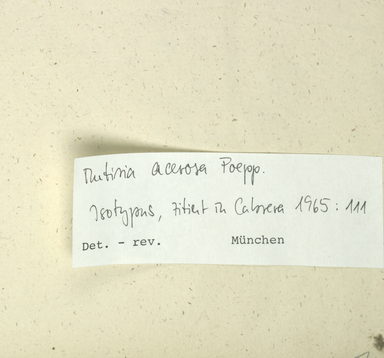 Mutisia acerosa Poepp.
Isotypus, zitiert in Cabrera 1965: 111
Det. - rev. München